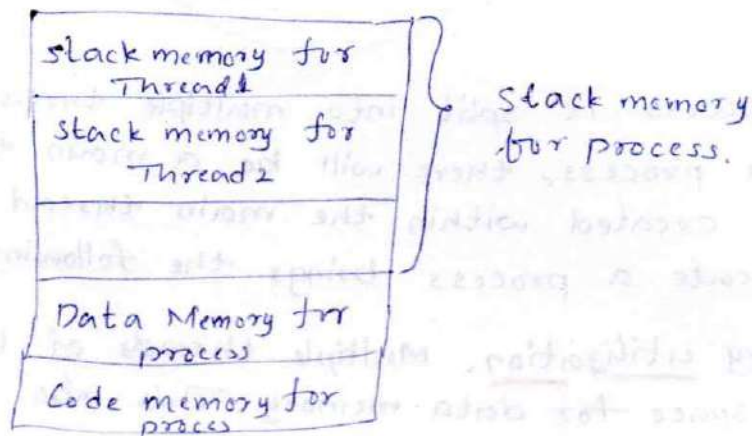 stack memory for
Thread1
stack memory for
Thread2
Stack memory
for process.
Data Memory for
process
Code memory for
proces